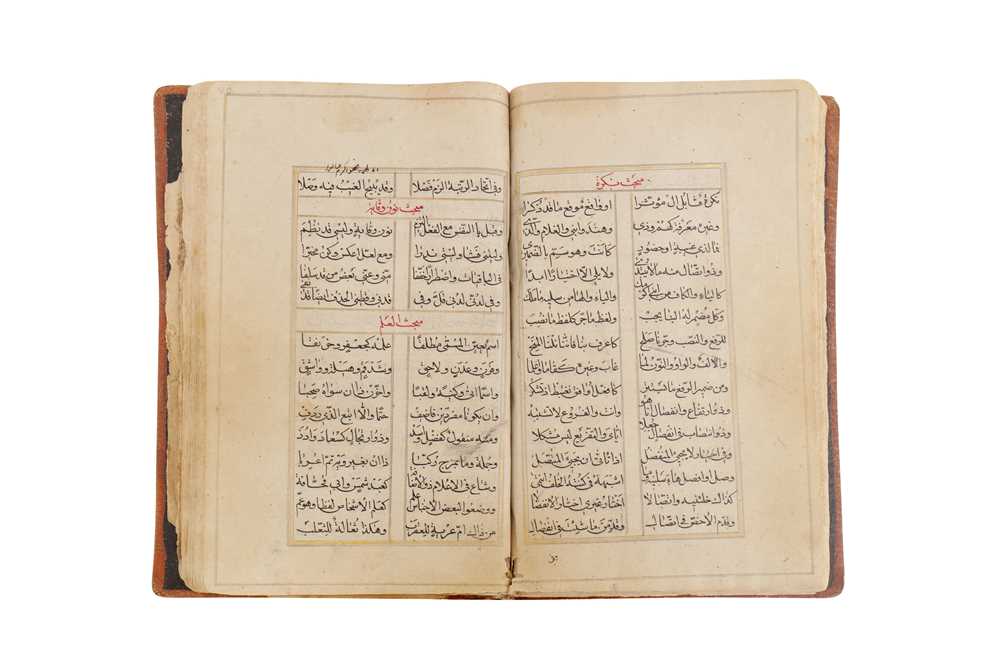 مبحث نكرة
نكرة قابل ال مؤثرا او واقع موقع ما قد ذكرا
وغيره معرفة كهم وذي وهند وابني والغلام والذي
فما لذي غيبة او حضور كانت وهو سم بالضمير
وذو اتصال منه ما لا يبتدى ولا يلي الا اختيارا ابدا
كالياء والكاف من ابني اكرمك والياء والها من سليه ما ملك
وكل مضمر له البنا يجب ولفظ ما جر كلفظ ما نصب
للرفع والنصب وجر نا صلح كاعرف بنا فاننا نلنا المنح
والالف والواو والنون لما غاب وغيره كقاما واعلما
ومن ضمير الرفع ما يستتر كافعل اوافق نغتبط اذ تشكر
وذو ارتفاع وانفصال انا هو وانت والفروع لا تشتبه
وذو انتصاب في انفصال جعلا اياي والتفريع ليس مشكلا
وفي اختيار لا يجيء المنفصل اذا تاتى ان يجيء المتصل
وصل او افصل هاء سلنيه وما اشبهه في كنته الخلف انتمى
كذاك خلتنيه واتصالا اختار غيري اختار الانفصالا
وقدم الاخص في اتصال وقدمن ما شئت في انفصال
وفي اتحاد الرتبة الزم فصلا وقد يبيح الغيب فيه وصلا
مبحث نون وقايه
وقبل يا النفس مع الفعل التزم نون وقاية وليسي قد نظم
وليتني فشا وليتي ندرا ومع لعل اعكس وكن مخيرا
في الباقيات واضطرارا خففا مني وعني بعض من قد سلفا
وفي لدني لدني قل وفي قدني وقطني الحذف ايضا قد يفي
مبحث العلم
اسم يعين المسمى مطلقا علمه كجعفر وخرنقا
وقرن وعدن ولاحق وشذقم وهيلة وواشق
واسما اتى وكنية ولقبا واخرن ذا ان سواه صحبا
وان يكونا مفردين فاضف حتما والا اتبع الذي ردف
ومنه منقول كفضل واسد وذو ارتجال كسعاد وادد
وجملة وما بمزج ركبا ذا ان بغير ويه تم اعربا
وشاع في الاعلام ذو الاضافه كعبد شمس وابي قحافة
ووضعوا لبعض الاجناس علم كعلم الاشخاص لفظا وهو عم
من ذاك ام عريط للعقرب وهكذا ثعالة للثعلب